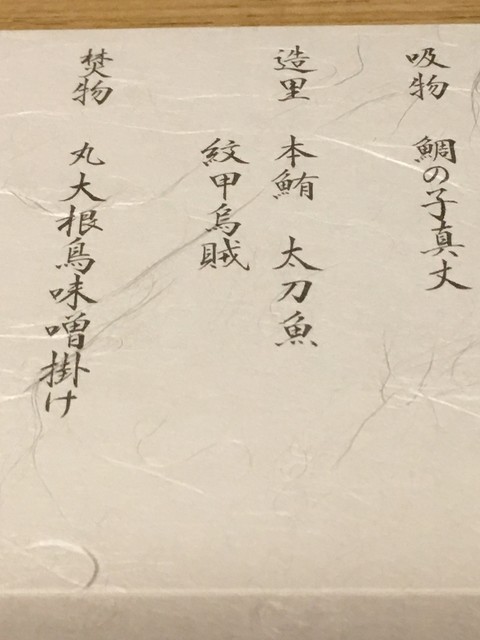 吸物 鯛の子真丈
造里 本鮪 太刀魚
紋甲烏賊
焚物 丸大根鳥味噌掛け